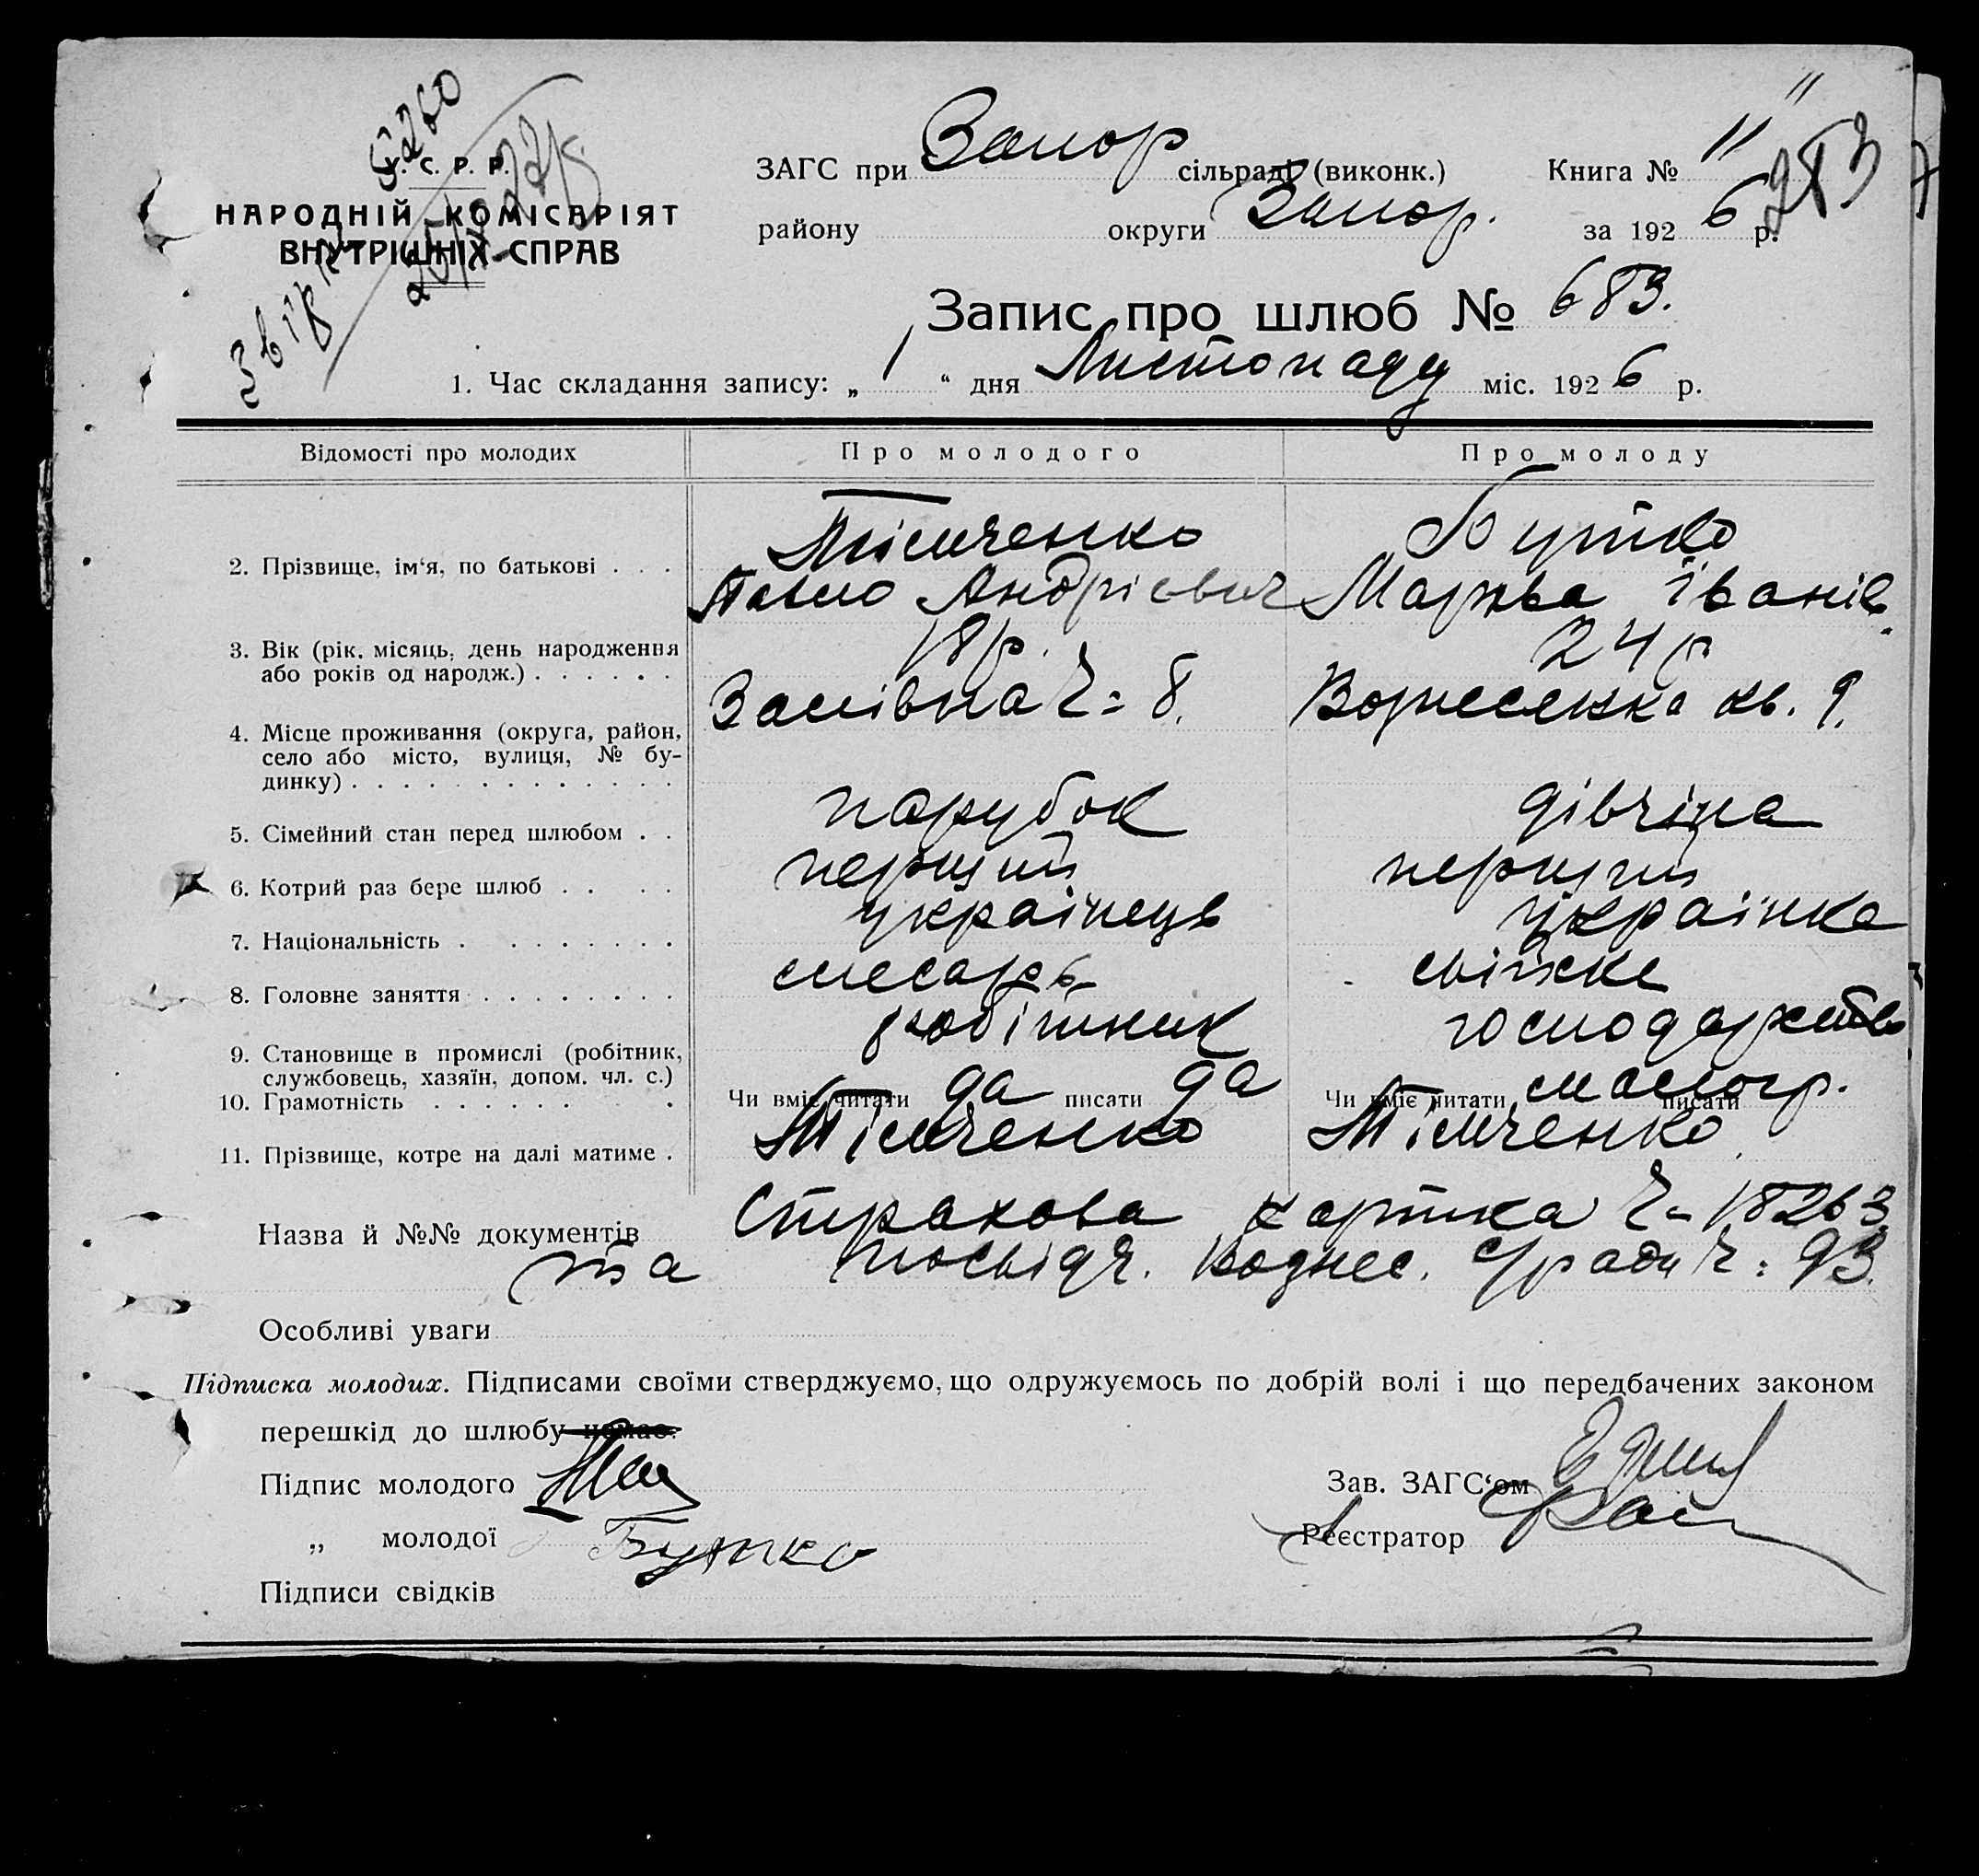 У. С. Р. Р.
НАРОДНІЙ КОМІСАРІЯТ
ВНУТРІШНІХ СПРАВ
ЗАГС при Запор сільраді (виконк.) Книга № 11
283
району округи Запор. за 192 6 р.
Запис про шлюб № 683.
1. Час складання запису: „ 1 “ дня Листопаду міс. 192 6 р.
Відомості про молодих Про молодого Про молоду
2. Прізвище, ім‘я, по батькові . . . Тімченко Бутко
Павло Андрієвич Марьва Іванів.
3. Вік (рік, місяць, день народження або років од народж.) . . . . . . 18 р. 24 р
4. Місце проживання (округа, район, село або місто, вулиця, № будинку) . . . Ч = 8. Вознесенка кв. 9.
5. Сімейний стан перед шлюбом . . парубок дівчіна
6. Котрий раз бере шлюб . . . . перший перший
7. Національність . . . . . . . . українець українка
8. Головне заняття . . . . . . . . слесарь сільске
9. Становище в промислі (робітник, службовець, хазяїн, допом. чл. с.) робітник господарство
10. Грамотність . . . . . . . Чи вміє читати да писати да Чи вміє читати малогр. писати
11. Прізвище, котре на далі матиме . Тімченко Тімченко
Назва й №№ документів Страхова картка Ч = 18263
та посвідч. Вознес. с/ради Ч = 93.
Особливі уваги
Підписка молодих. Підписами своїми стверджуємо, що одружуємось по добрій волі і що передбачених законом
перешкід до шлюбу немає.
Підпис молодого Зав. ЗАГС‘ом
„ молодої Бутко Реєстратор
Підписи свідків